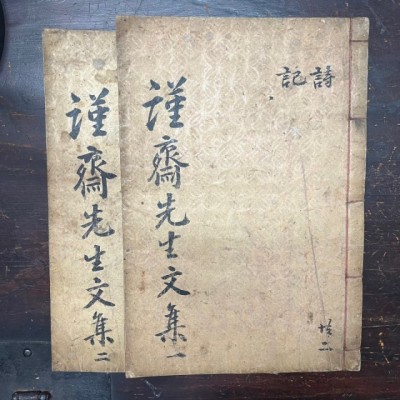 詩
記
謹齋先生文集一
謹齋先生文集二